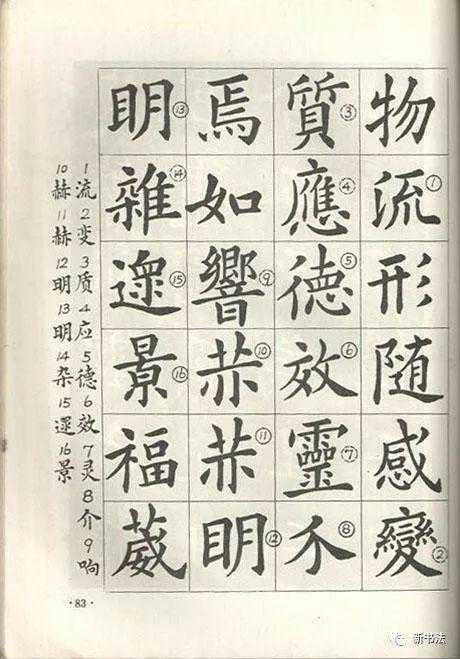 物流①形随感變②
質③應④德⑤效⑥靈⑦介⑧
焉如響⑨赫⑩赫⑪眀⑫
眀⑬雜⑭遝⑮景⑯福葳
1流2变3质4应5德6效7灵8介9响
10赫11赫12明13明14杂15遝16景
·83·
新书法